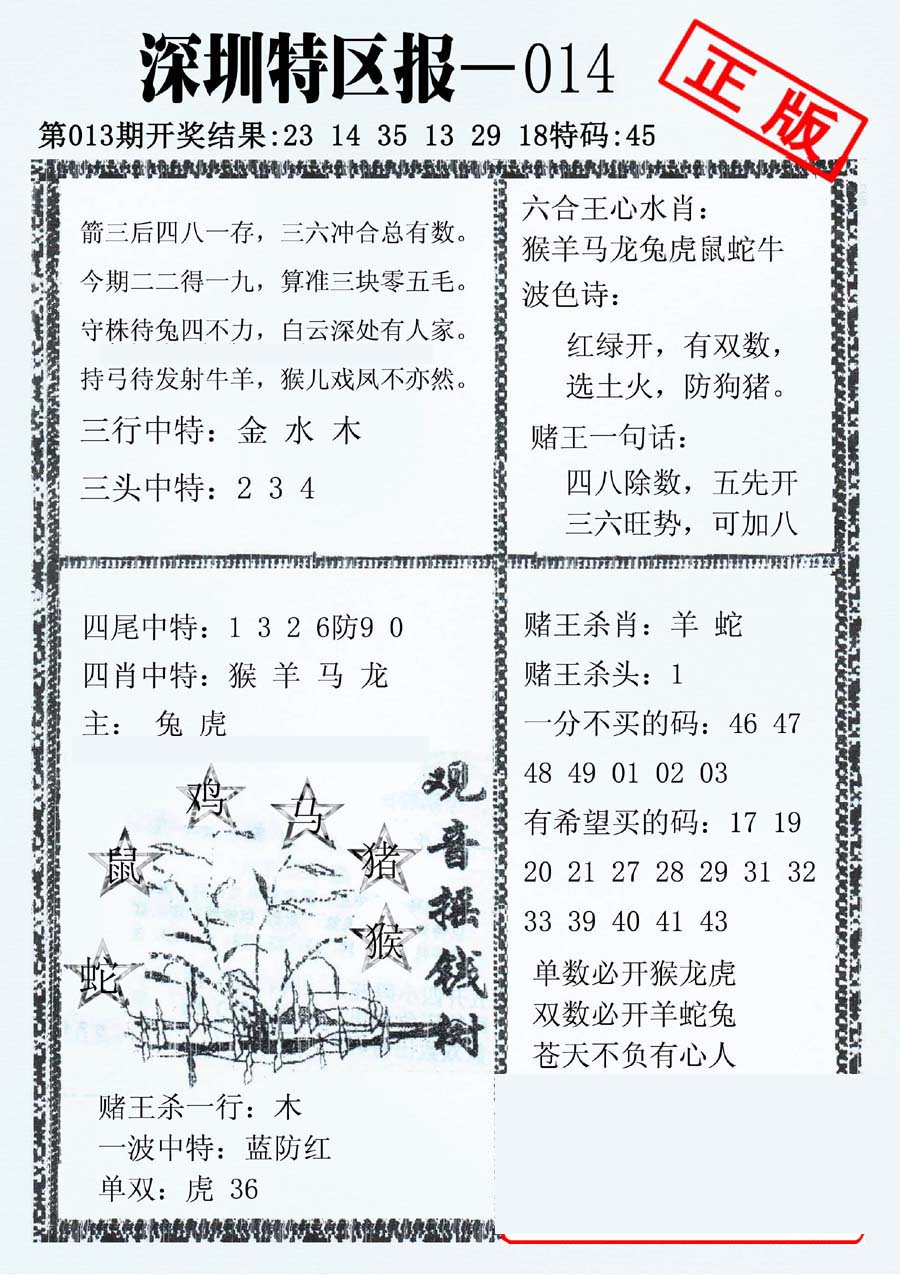 深圳特区报—014
正版
第013期开奖结果:23 14 35 13 29 18特码:45
箭三后四八一存，三六冲合总有数。
今期二二得一九，算准三块零五毛。
守株待兔四不力，白云深处有人家。
持弓待发射牛羊，猴儿戏凤不亦然。
三行中特：金 水 木
三头中特：2 3 4
六合王心水肖：
猴羊马龙兔虎鼠蛇牛
波色诗：
红绿开，有双数，
选土火，防狗猪。
赌王一句话：
四八除数，五先开
三六旺势，可加八
四尾中特：1 3 2 6防9 0
四肖中特：猴 羊 马 龙
主： 兔 虎
鸡
马
鼠
猪
猴
蛇
观音摇钱树
赌王杀一行：木
一波中特：蓝防红
单双：虎 36
赌王杀肖：羊 蛇
赌王杀头：1
一分不买的码：46 47
48 49 01 02 03
有希望买的码：17 19
20 21 27 28 29 31 32
33 39 40 41 43
单数必开猴龙虎
双数必开羊蛇兔
苍天不负有心人